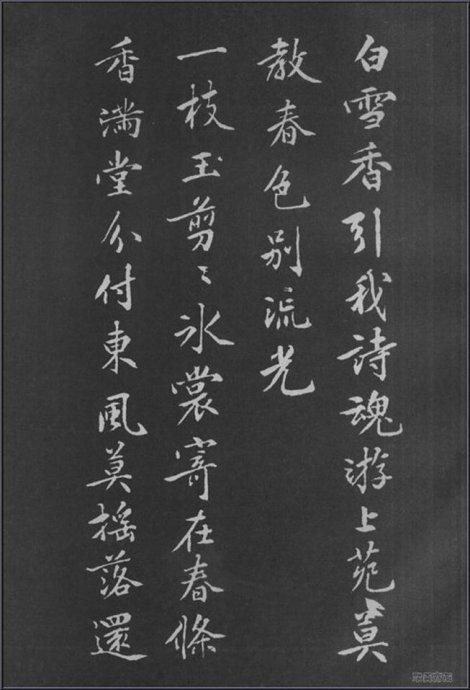 白雪香引我詩魂游上苑莫
教春色别流光
一枝玉剪〻冰裳寄在春條
香滿堂分付東風莫摇落還